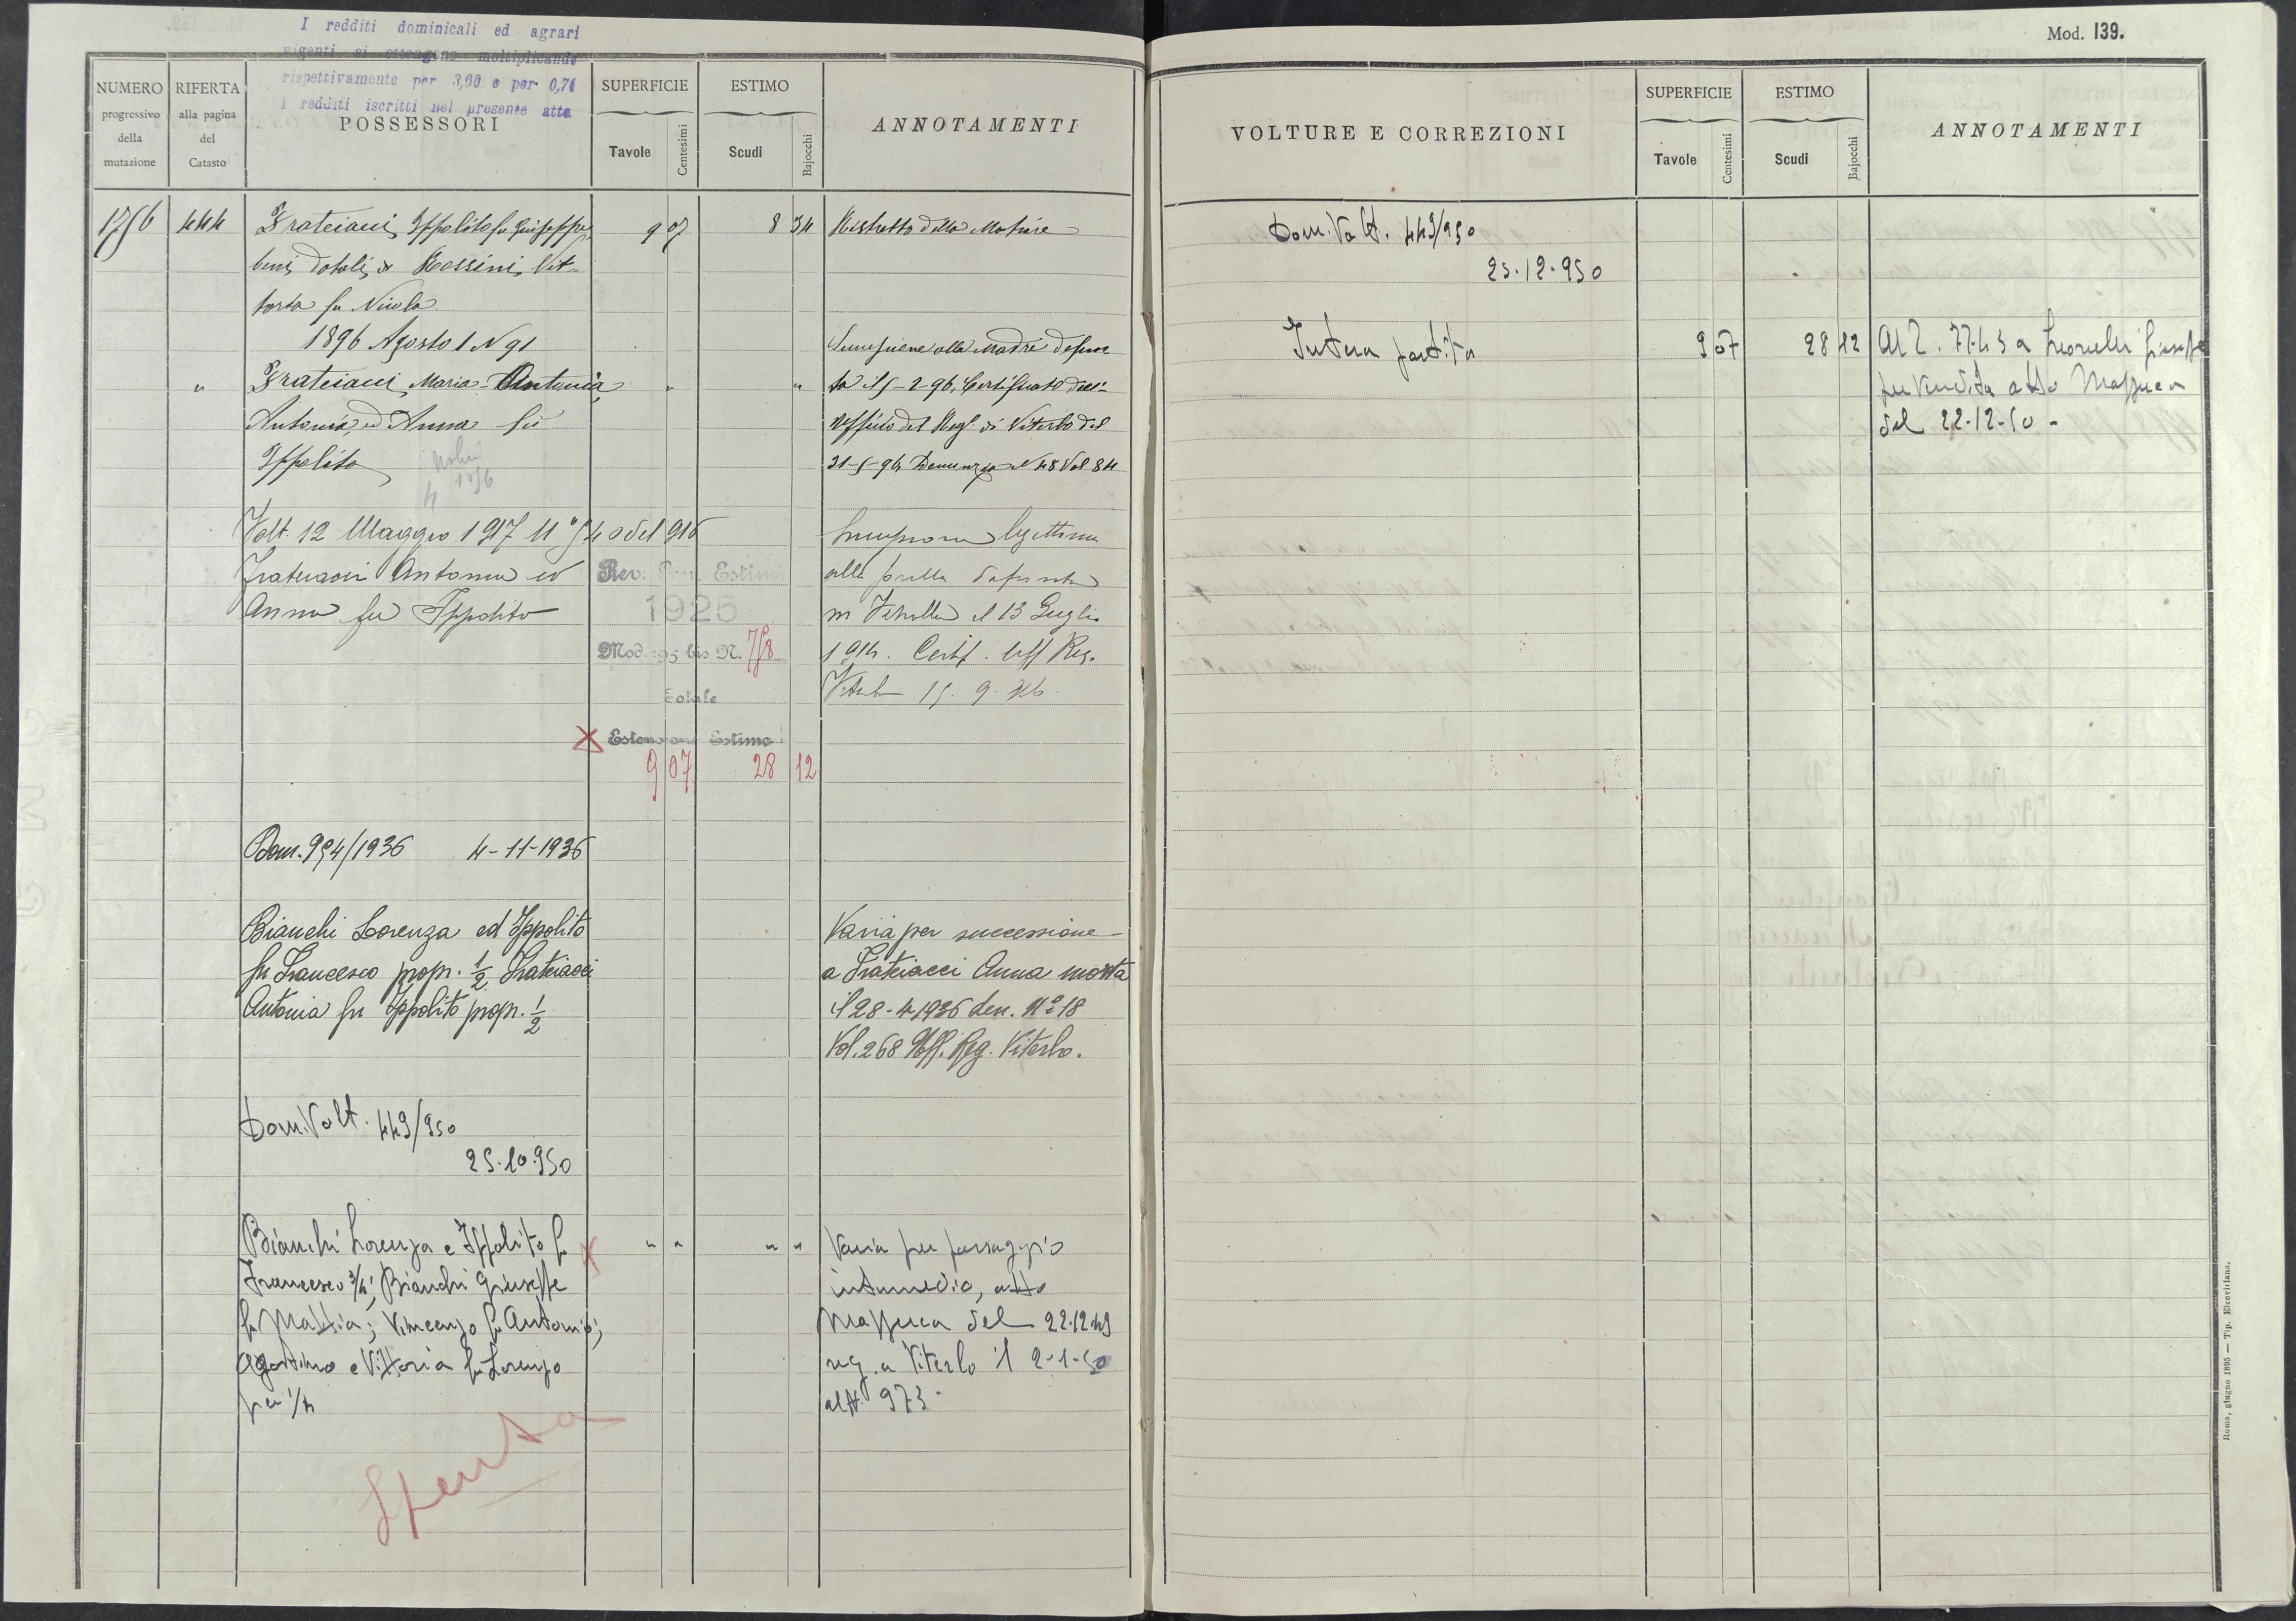 I redditi dominicali ed agrari
vigenti si ottengono moltiplicando
rispettivamente per 3,60 e per 0,71
i redditi iscritti nel presente atto
Mod. 139.
NUMERO progressivo della mutazione
RIFERTA alla pagina del Catasto
POSSESSORI
SUPERFICIE
Tavole
Centesimi
ESTIMO
Scudi
Bajocchi
ANNOTAMENTI
1756 444 Frateiacci Ippolito fu Giuseppe 9 07 8 34 Ristretto della Matrice
beni dotali di Rossini Vit-
toria fu Nicola
1896 Agosto 1 N 91 Successione alla Madre defun
" Frateiacci Maria-Antonia, " " ta il 5-2-96, Certificato dell'
Antonia, ed Anna fu Ufficio del Reg. di Viterbo del
Ippolito 31-5-96 Denunzia N 48 Vol 84
1756
4
Volt. 12 Maggio 1917 N° 540 del 916 Successione legittima
Frateiacci Antonia ed Rev. Gen. Estimi alla sorella defunta
Anna fu Ippolito 1925 in Vetralla il 13 Luglio
Mod. 95 bis N. 758 1914. Certif. Uff Reg.
Totale Viterbo 15. 9. 916
X Estensione Estimo
9 07 28 12
Dom. 994/1936 4-11-1936
Bianchi Lorenza ed Ippolito Varia per successione
fu Francesco propr. 1/2 Frateiacci a Frateiacci Anna morta
Antonia fu Ippolito propr. 1/2 il 28-4-1936 den. N° 18
Vol. 268 Uff. Reg. Viterbo.
Dom. Volt. 449/950
25.10.950
Bianchi Lorenza e Ippolito fu X " " " " Varia per passaggio
Francesco 3/4; Bianchi Giuseppe intermedio, atto
fu Mattia; Vincenzo fu Antonio; Mazzuca del 22.12.49
Agostino e Vittoria fu Lorenzo reg. a Viterbo il 2-1-50
per 1/4 al N. 973-
Spenta
VOLTURE E CORREZIONI
SUPERFICIE
Tavole
Centesimi
ESTIMO
Scudi
Bajocchi
ANNOTAMENTI
Dom. Volt. 449/950
25.12.950
Intera partita 9 07 28 12 Al 2. 7743 a Giuseppe
per vendita atto Mazzuca
del 22-12-50 -
Roma, giugno 1895 — Tip. Elzeviriana.